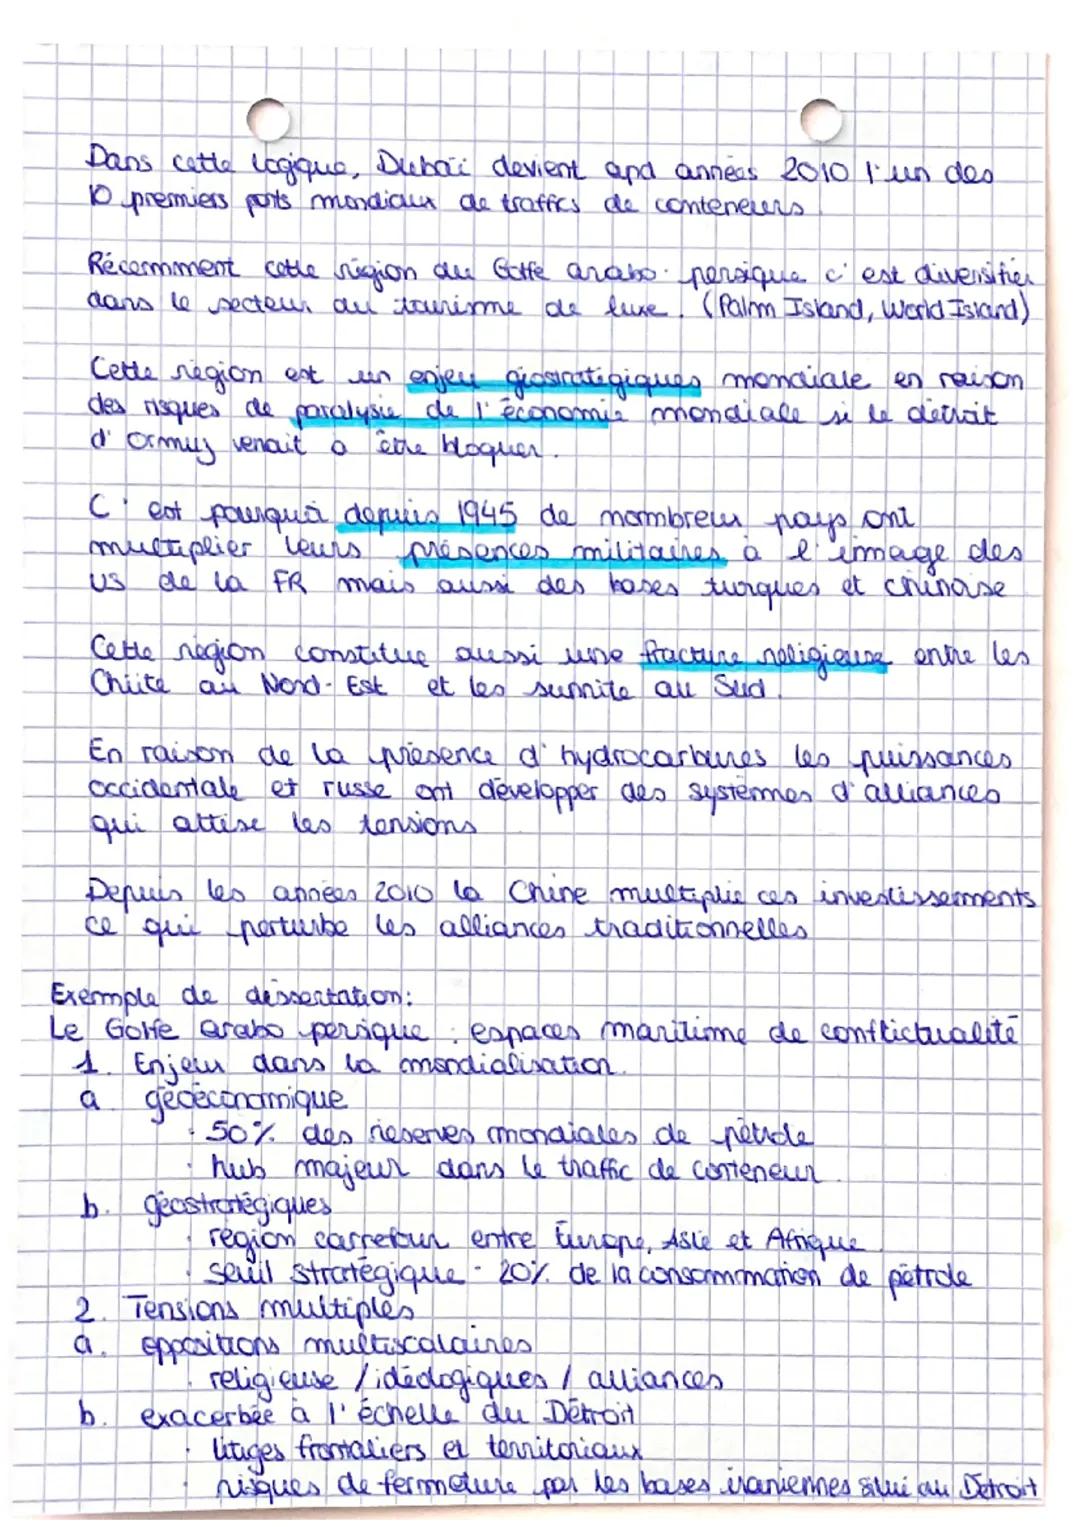 Dans cette logique, Dubaï devient apd années 2010 l'un des
10 premiers ports mondiaux de traffics de conteneurs.
Récemment cette région du Golfe arabo-persique c'est diversifier
dans le secteur du tourisme de luxe. (Palm Island, World Island)
Cette région est un enjeu géostratégiques mondiale en raison
des risques de paralysie de l'économie mondiale si le détroit
d'Ormuz venait a être bloquer.
C'est pourquoi depuis 1945 de nombreux pays ont
multiplier leurs présences militaires à l'image des
US de la FR mais aussi des bases turques et chinoise
Cette région constitue aussi une fracture religieuse entre les
Chiite au Nord-Est et les sunnite au Sud.
En raison de la présence d'hydrocarbures les puissances
occidentale et russe ont développer des systèmes d'alliances
qui attise les tensions
Depuis les années 2010 la Chine multiplie ces investissements
ce qui perturbe les alliances traditionnelles
Exemple de dissertation:
Le Golfe arabo persique : espaces maritime de conflictualité
1. Enjeux dans la mondialisation.
a. géoéconomique
· 50% des réserves mondiales de pétrole
· hub majeur dans le traffic de conteneur.
b. géostratégiques
· région carrefour entre Europe, Asie et Afrique.
· seuil stratégique - 20% de la consommation de pétrole
2. Tensions multiples
a. oppositions multiscalaires
· religieuse / idéologiques / alliances
b. exacerbée à l'échelle du Détroit
· litiges frontaliers et territoriaux
· risques de fermeture par les bases iraniennes situé au Détroit